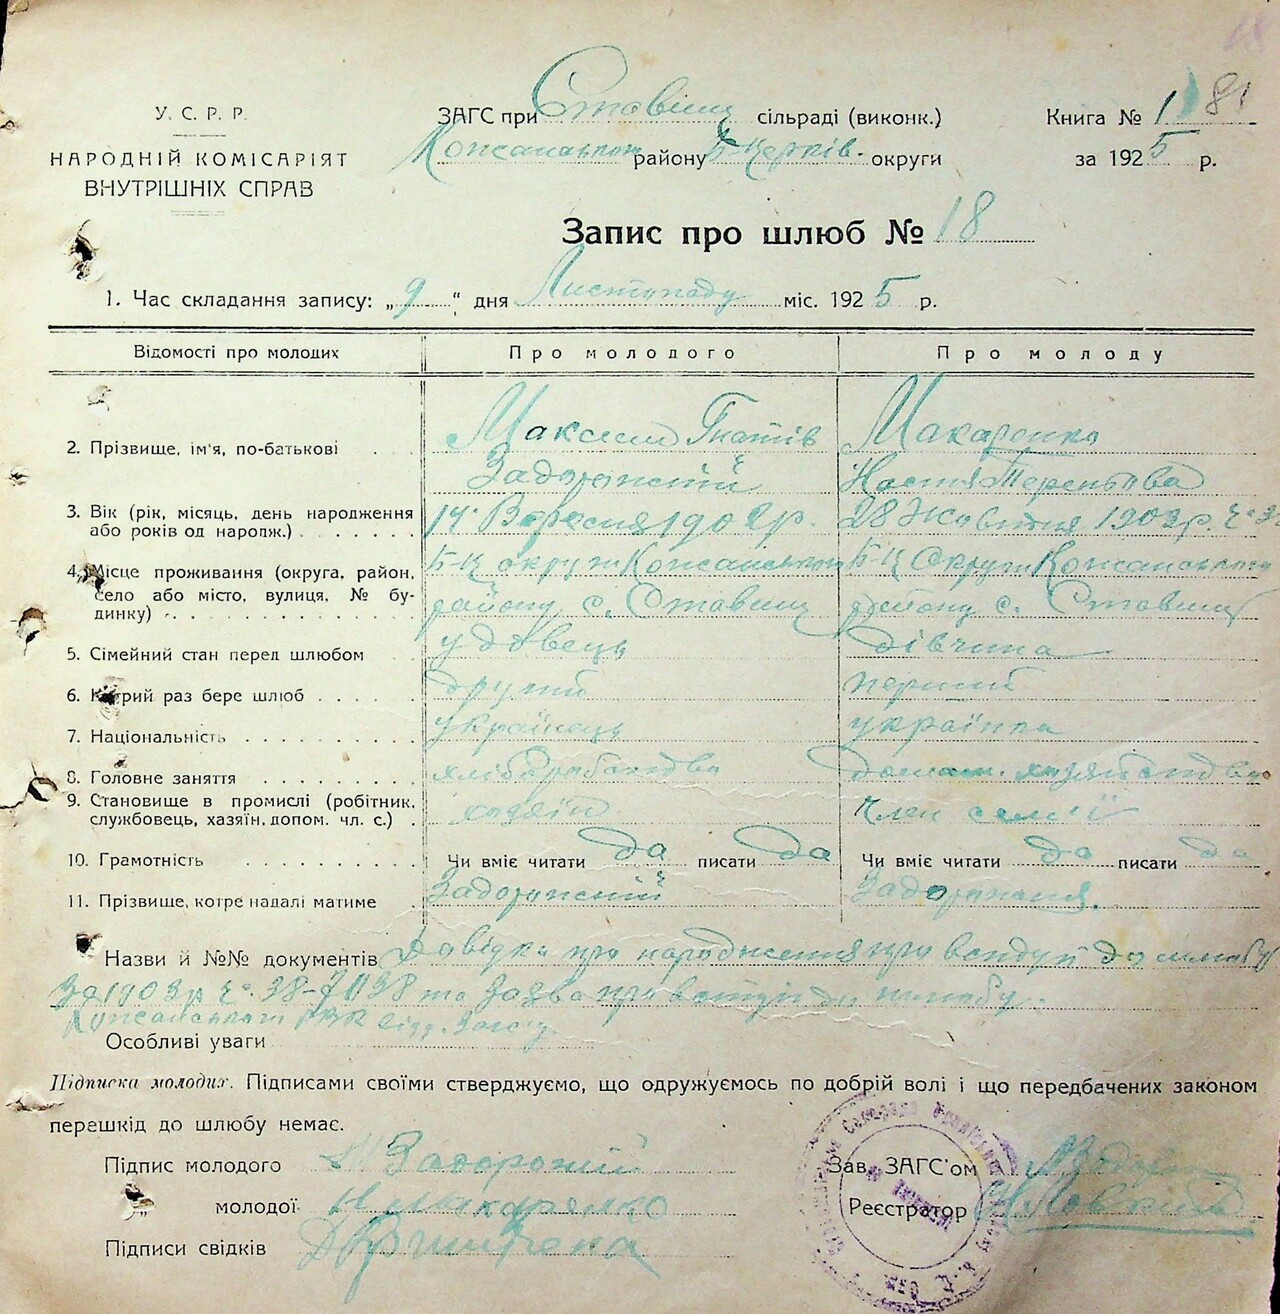 18
У. С. Р. Р.
НАРОДНІЙ КОМІСАРІЯТ
ВНУТРІШНІХ СПРАВ
ЗАГС при Ставищ сільраді (виконк.)
Кожанськом району Б-Церків. округи
Книга № 1 81
за 1925 р.
Запис про шлюб № 18
1. Час складання запису: „9“ дня Листопаду міс. 1925 р.
Відомості про молодих Про молодого Про молоду
2. Прізвище, ім'я, по-батькові Максим Гнатів Макаренко
Задорожній Настя Терентьєва
3. Вік (рік, місяць, день народження або років од народж.) 14 Вересня 1902 р. 28 Жовтня 1903 р.
4. Місце проживання (округа, район, Б-Ц округи Кожанського Б-Ц Округи Кожанського
село або місто, вулиця, № бу- району с. Ставищ району с. Ставищ
динку)
5. Сімейний стан перед шлюбом удовець дівчина
6. Котрий раз бере шлюб другий перший
7. Національність українець українка
8. Головне заняття хліборобство домашн. хазяйство
9. Становище в промислі (робітник,
службовець, хазяїн, допом. чл. с.) хазяїн член семʼї
10. Грамотність Чи вміє читати да писати да Чи вміє читати да писати да
11. Прізвище, котре надалі матиме Задорожній Задорожня.
Назви й №№ документів Довідка про народження про вступ до шлюбу
За 1903 р та Заява про вступ до шлюбу.
Особливі уваги
Підписка молодих. Підписами своїми стверджуємо, що одружуємось по добрій волі і що передбачених законом
перешкід до шлюбу немає.
Підпис молодого М Задорожній
„ молодої Н Макаренко
Підписи свідків
Зав. ЗАГС'ом
Реєстратор